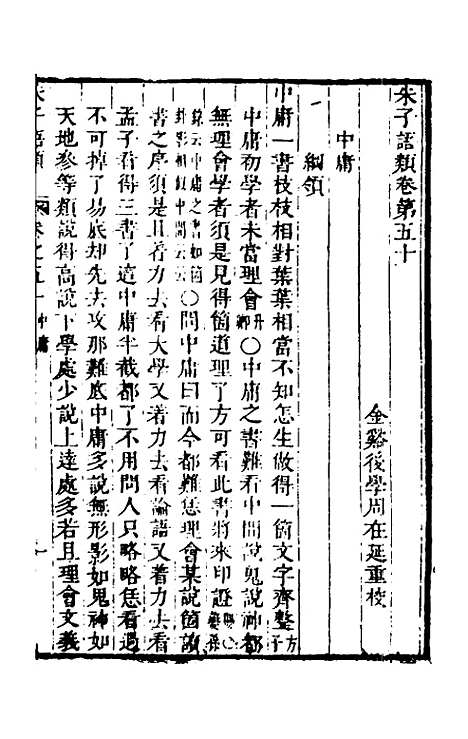 朱子語類卷第五十
金谿後學周在延重校
中庸
綱領
中庸一書枝枝相對葉葉相當不知怎生做得一箇文字齊整方子
中庸初學者未當理會升卿○中庸之書難看中間說鬼說神都
無理會學者須是見得箇道理了方可看此書將來印證
錄云中庸之書如箇卦影相似中間云云○問中庸曰而今都難恁理會某說箇讀
書之序須是且着力去看大學又着力去看論語又着力去看
孟子看得三書了這中庸半截都了不用問人只略略恁看過
不可掉了易底却先去攻那難底中庸多說無形影如鬼神如
天地參等類說得高說下學處少說上達處多若且理會文義
朱子語類 卷之五十 中庸 一